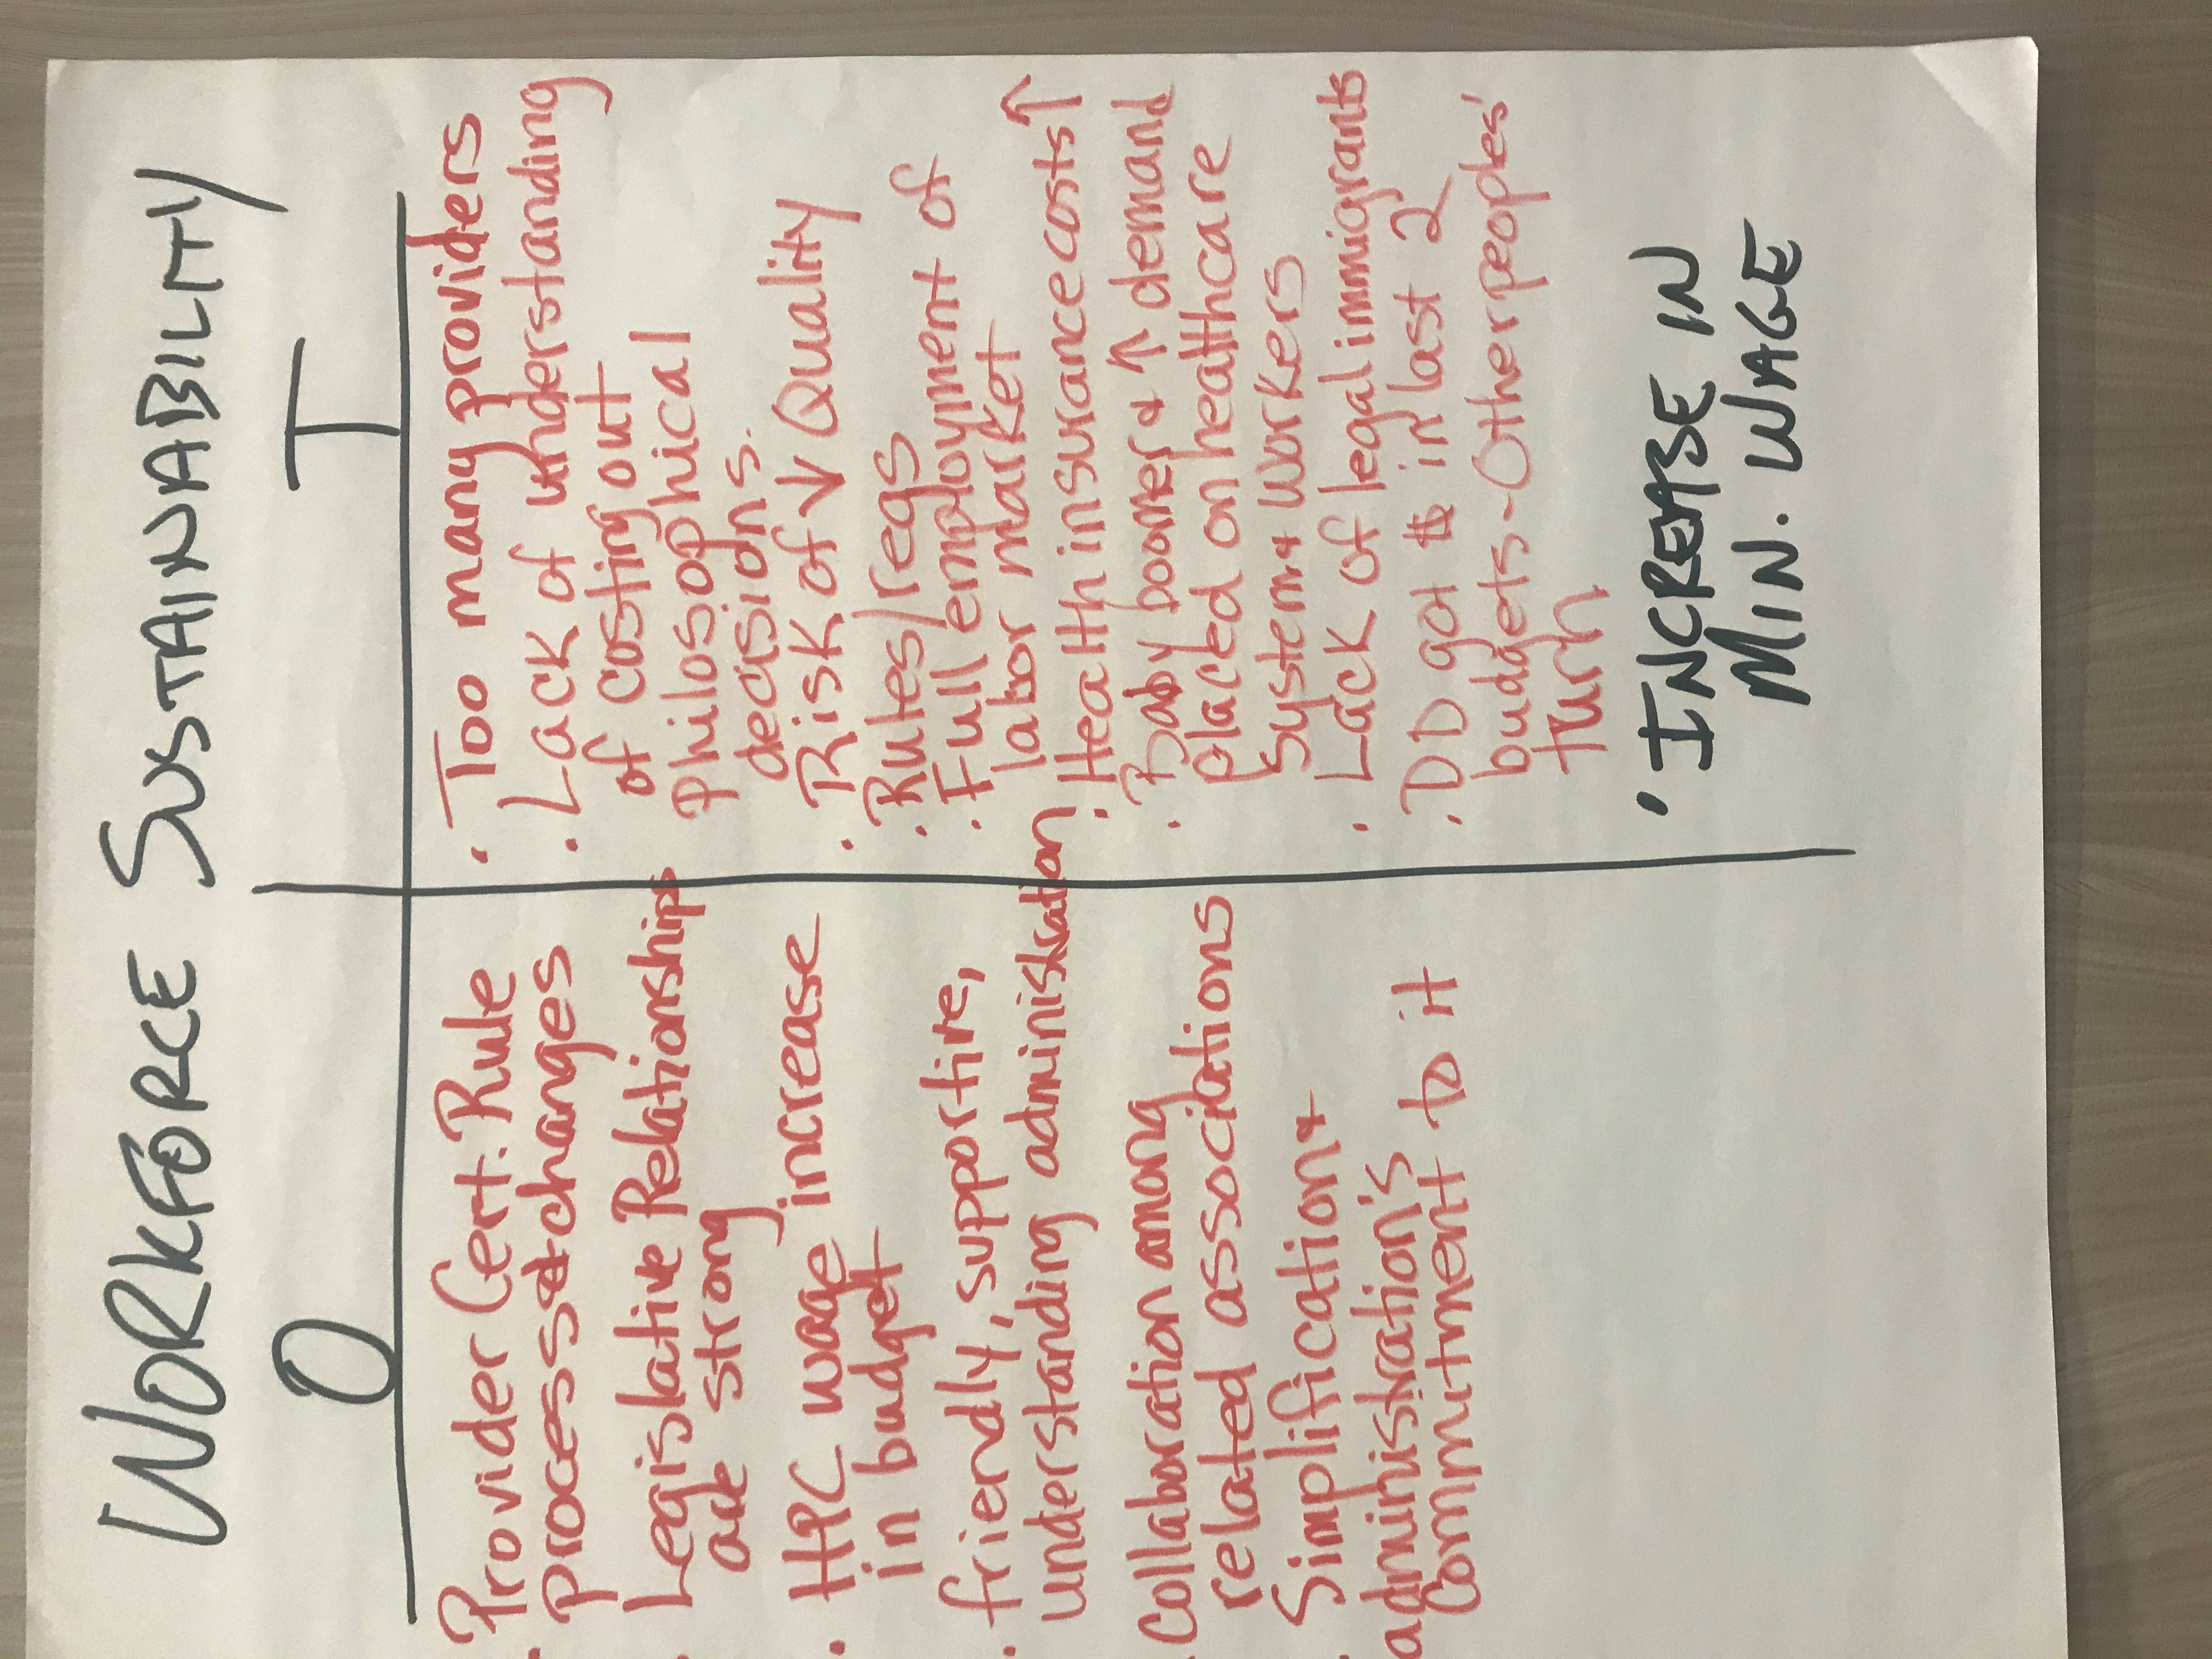 WORKFORCE SUSTAINABILITY
O
· Provider Cert. Rule
process + changes
· Legislative Relationships
are strong
· HPC wage increase
in budget
· friendly, supportive,
understanding administration
· Collaboration among
related associations
· Simplification +
administration's
commitment to it
T
· Too many providers
· Lack of understanding
of costing out
philosophical
decisions.
· Risk of ↓ Quality
· Rules/regs
· Full employment of
labor market
· Health insurance costs ↑
· Baby boomer + ↑ demand
placed on healthcare
system + workers
· Lack of legal immigrants
· DD got $ in last 2
budgets - Other peoples'
turn
· INCREASE IN
MIN. WAGE